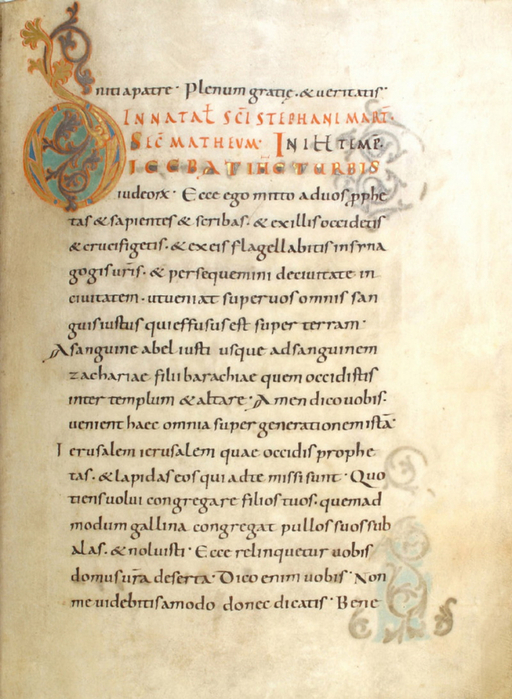 niti a patre · Plenum gratię · & veritatis ·
IN NATAŁ S̄C̄I STEPHANI MART̄.
SEC̄ MATHEUM · IN ILL TEMP̄.
DICEBAT IHC TURBIS
iudeorꝝ · Ecce ego mitto ad uos pphe
tas & sapientes & scribas · & ex illis occidetis
& crucifigetis · & ex eis flagellabitis in syna
gogis ur̄is · & persequemini de ciuitate in
ciuitatem · ut ueniat super uos omnis san
guis iustus qui effusus est super terram ·
A sanguine abel iusti usque ad sanguinem
zachariae filii barachiae quem occidistis
inter templum & altare · Amen dico uobis ·
uenient haec omnia super generationem istā ·
Ierusalem ierusalem quae occidis prophe
tas · & lapidas eos qui ad te missi sunt · Quo
tiens uolui congregare filios tuos · quemad
modum gallina congregat pullos suos sub
alas · & noluisti · Ecce relinquetur uobis
domus ur̄a deserta · Dico enim uobis · Non
me uidebitis amodo donec dicatis · Bene